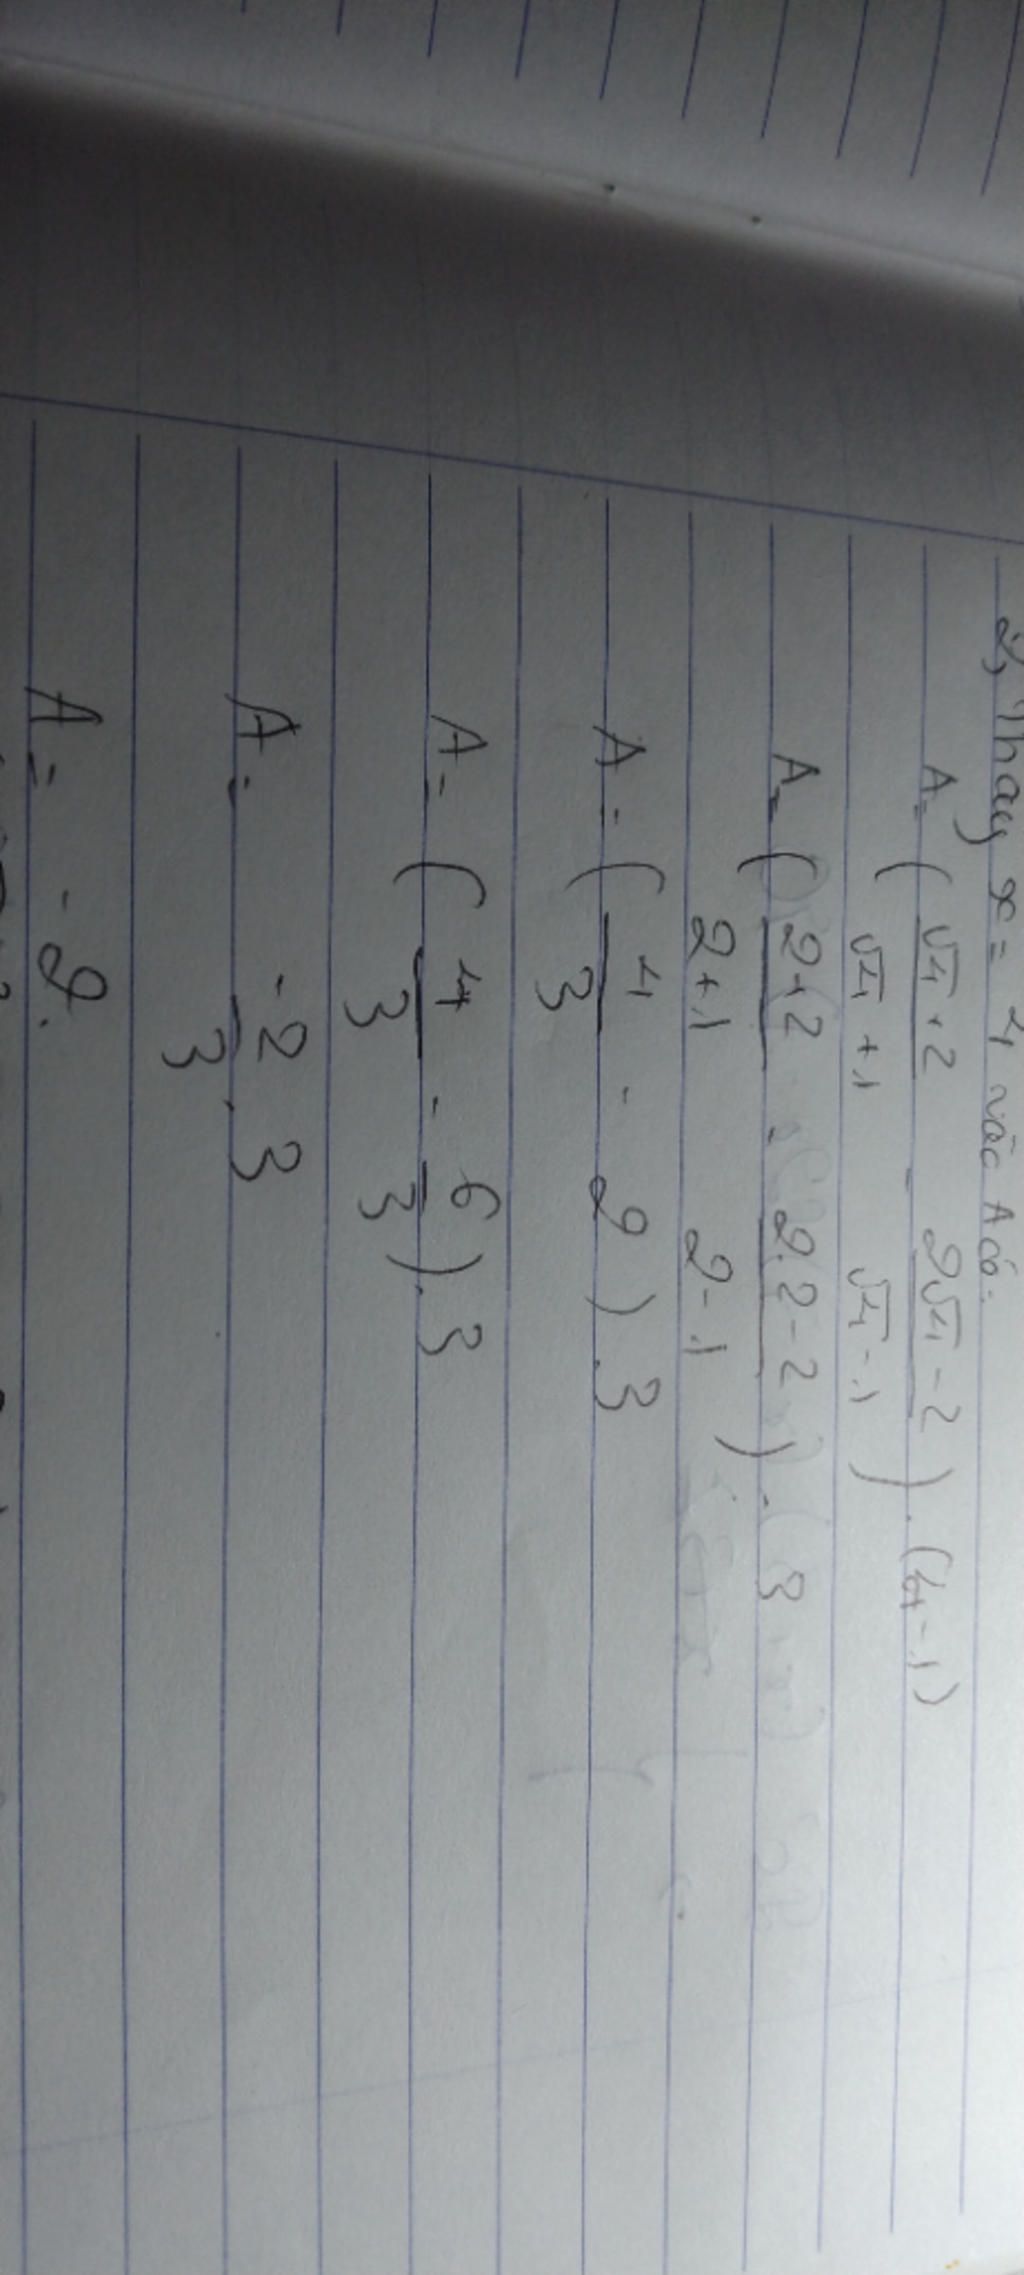 2, Thay x = 4 vào A có:
A = ( (√4 + 2)/(√4 + 1) - (2√4 - 2)/(√4 - 1) ) . (4 - 1)
A = ( (2+2)/(2+1) - (2.2-2)/(2-1) ) . (3
A = ( 4/3 - 2 ) . 3
A = ( 4/3 - 6/3 ) . 3
A = -2/3 . 3
A = -2.